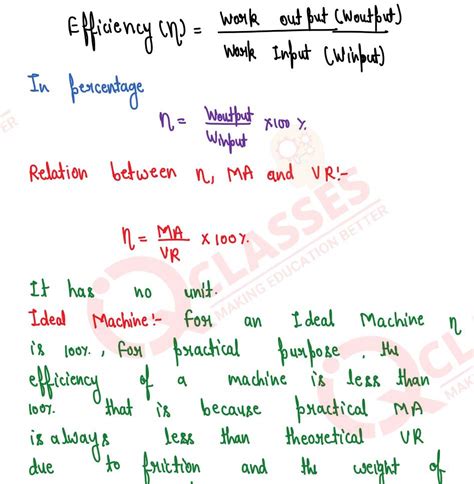 Efficiency (η) = Work output (Woutput)
Work Input (Winput)
In percentage
η = Woutput x100 %
Winput
Relation between η, MA and VR:-
η = MA x 100%
VR
It has no unit.
Ideal Machine:- for an Ideal Machine η
is 100%, for practical purpose, the
efficiency of a machine is less than
100% that is because practical MA
is always less than theoretical VR
due to friction and the weight of
CLASSES
MAKING EDUCATION BETTER
CL
MAKING
ER